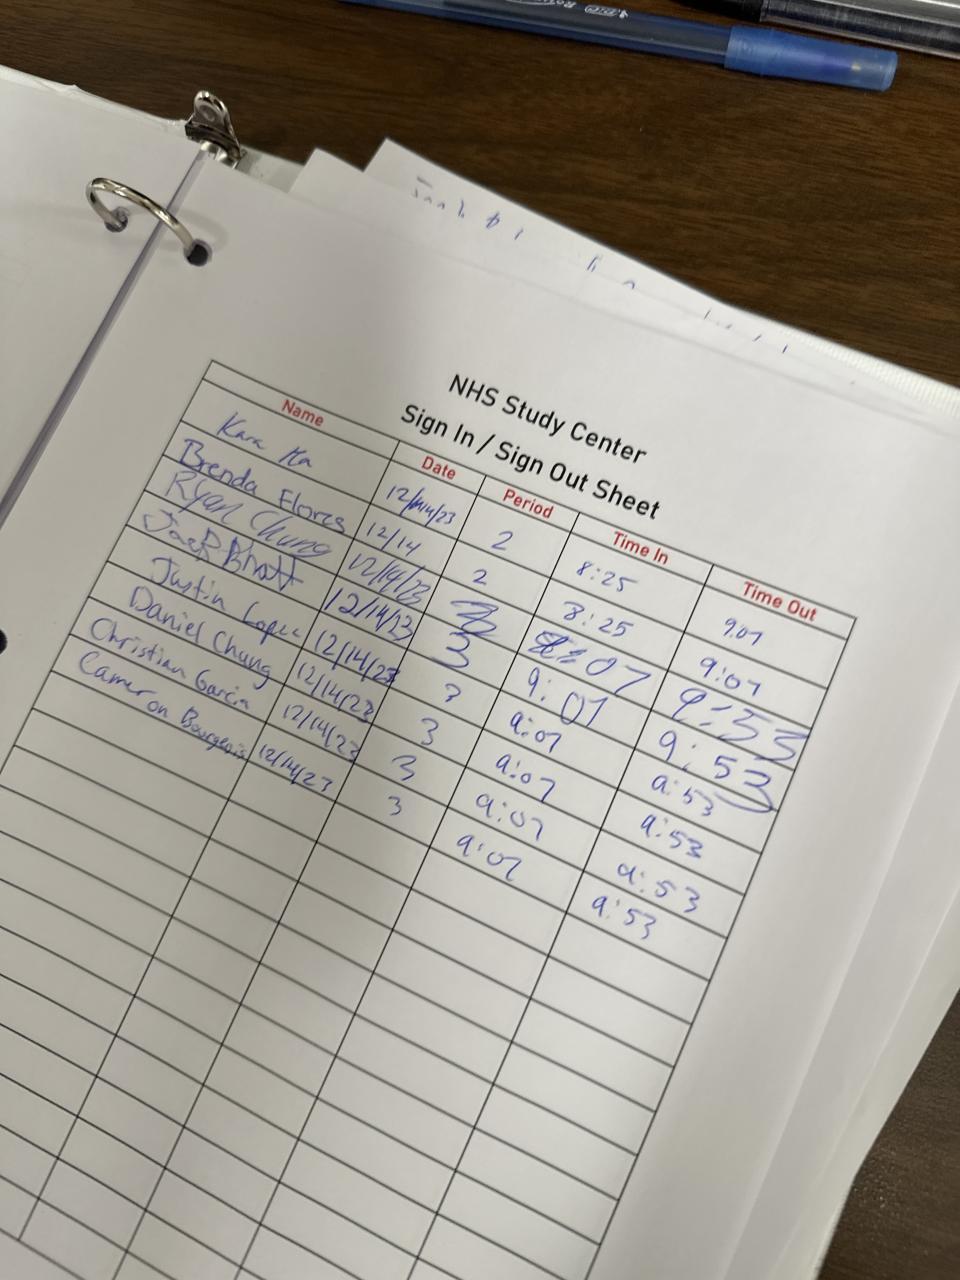 NHS Study Center
Sign In / Sign Out Sheet
Name Date Period Time In Time Out
Kara 12/14/23 2 8:25 9:07
Brenda Flores 12/14 2 8:25 9:07
Ryan Chung 12/14/23 :07 9:53
Jack Bhatt 12/14/23 3 9:07 9:53
Justin Lopez 12/14/23 3 9:07 9:53
Daniel Chung 12/14/23 3 9:07 9:53
Christian Garcia 12/14/23 3 9:07 9:53
Cameron Bourgeois 12/14/23 3 9:07 9:53